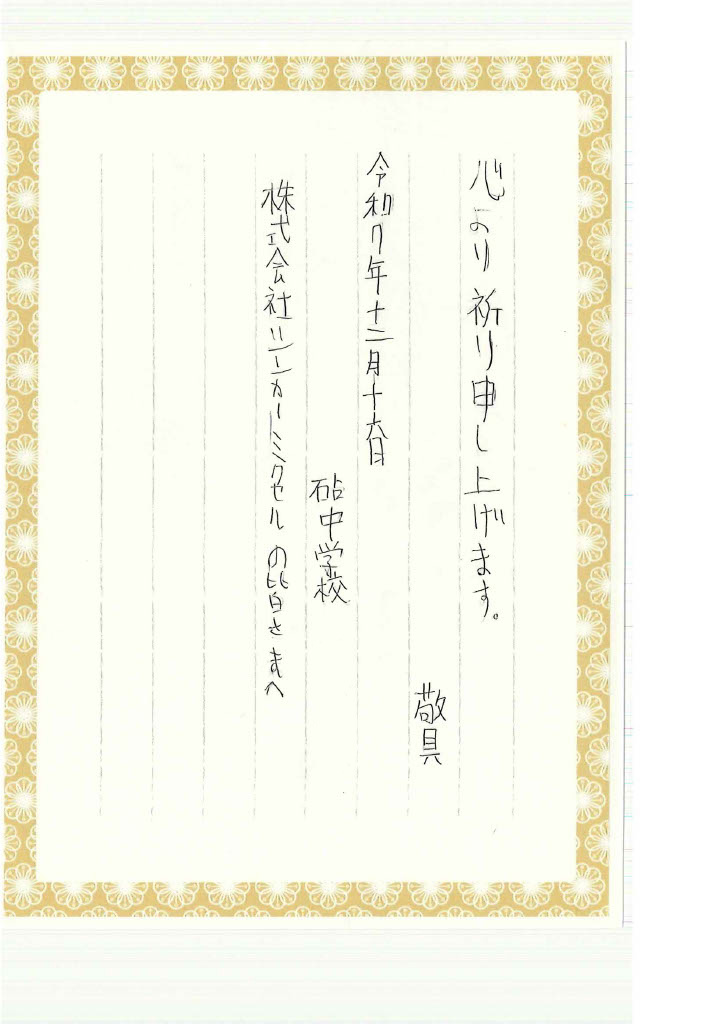 心より祈り申し上げます。
敬具
令和7年十二月十六日
砧中学校
株式会社リンカーミクセルの皆さまへ